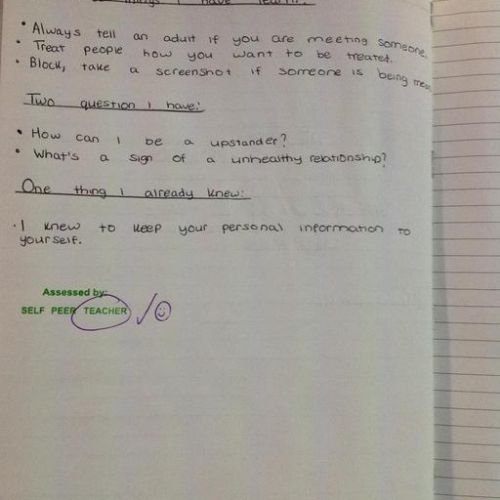 things I have
• Always tell an adult if you are meeting someone.
• Treat people how you want to be treated.
• Block, take a screenshot if someone is being mean
Two question I have:
• How can I be a upstander?
• What's a sign of a unhealthy relationship?
One thing I already knew:
• I knew to keep your personal information to
yourself.
Assessed by:
SELF PEER TEACHER